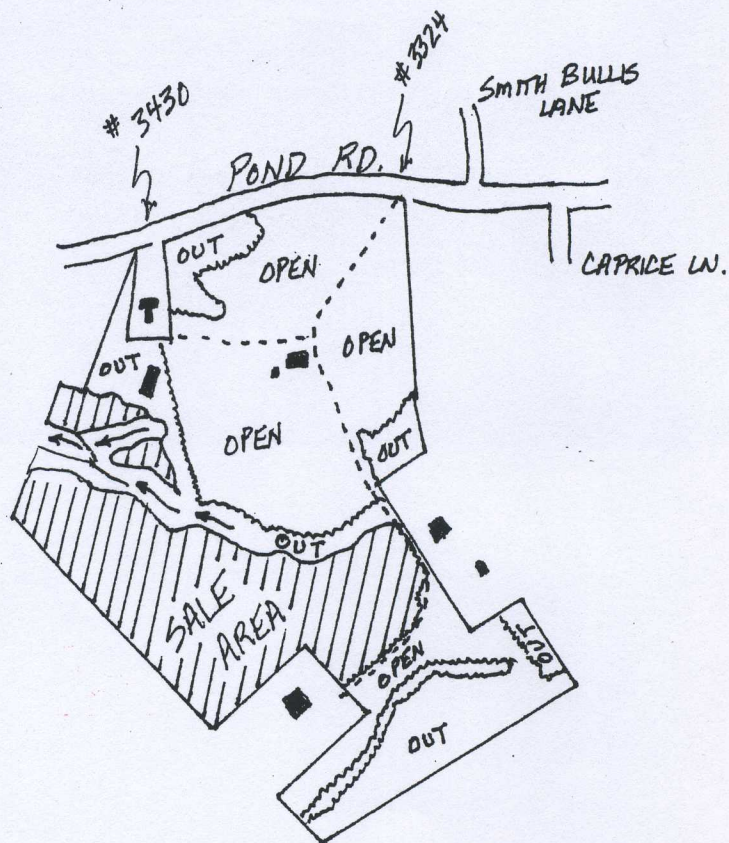 # 3430
# 3324
SMITH BULLIS
LANE
POND RD.
CAPRICE LN.
OUT
OPEN
OPEN
OUT
OPEN
OUT
OUT
SALE
AREA
OUT
OPEN
OUT